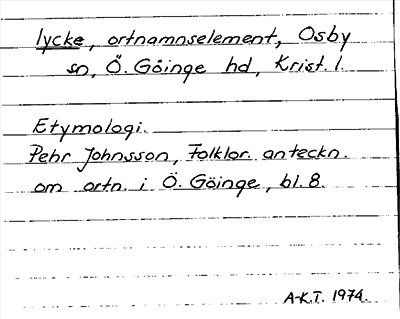 lycke, ortnamnselement, Osby
sn, Ö. Göinge hd, Krist. l.
Etymologi.
Pehr Johnsson, Folklor. anteckn.
om ortn. i Ö. Göinge, bl. 8.
A-K.T. 1974.